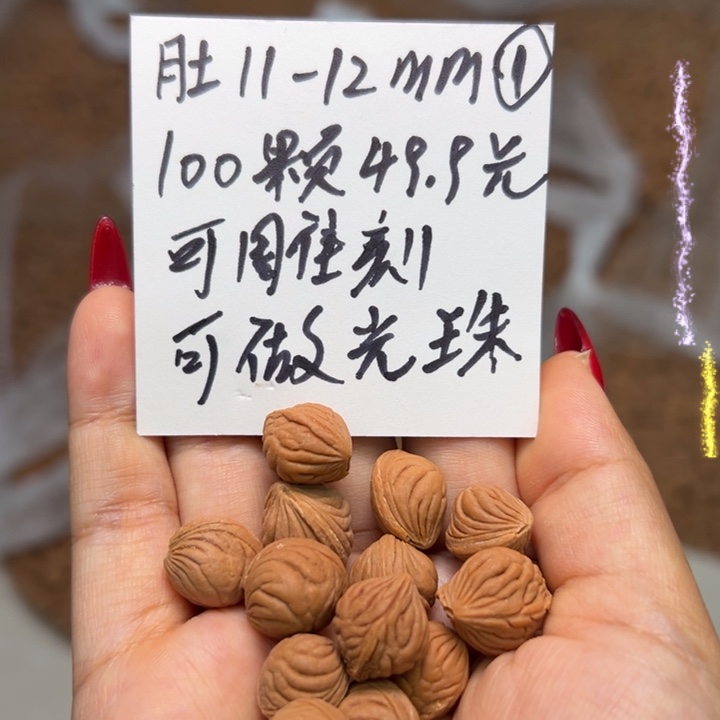 肚11-12mm①
100颗49.9元
可周雕刻
可做光珠